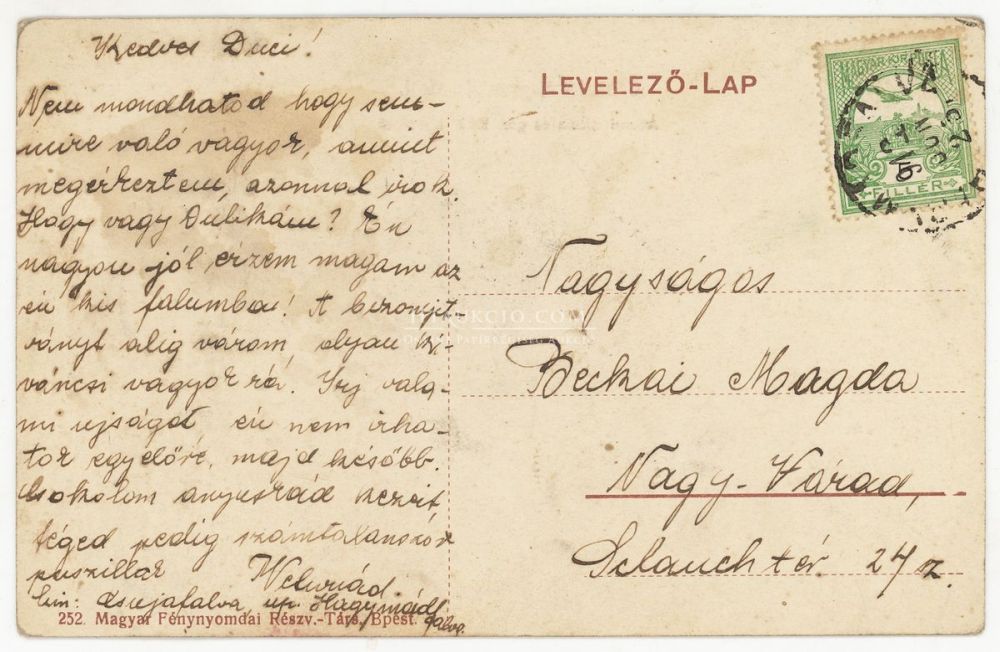 Kedves Duci!
Nem mondhatod hogy sem-
mire való vagyok, amint
megérkeztem, azonnal irok.
Hogy vagy Dulikám? Én
nagyon jól érzem magam az
én kis falumba! A bizonyit-
ványt alig várom, olyan ki-
váncsi vagyok rá. Irj vala-
mi ujságot én nem irha-
tok egyelőre, majd később.
Csokolom anyuskád kezeit,
téged pedig számtalanszor
puszillak
cim: up.
LEVELEZŐ-LAP
MAGYAR KIR. POSTA
FILLÉR
Nagyságos
Beckai Magda
Nagy-Várad,
Schlauch tér 24 z.
252. Magyar Fénynyomdai Részv.-Társ. Bpest.